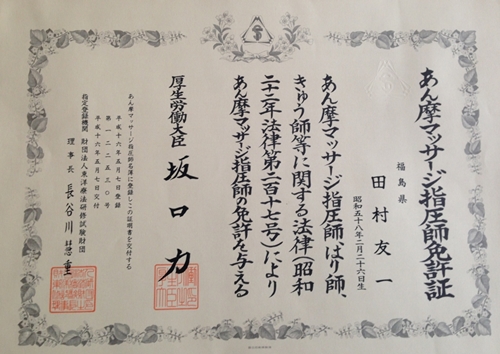 あん摩マッサージ指圧師免許証
福島県
田村友一
昭和五十八年二月二十六日生
あん摩マッサージ指圧師、はり師、
きゅう師等に関する法律(昭和
二十二年法律第二百十七号)により
あん摩マッサージ指圧師の免許を与える
厚生労働大臣 坂口力
あん摩マッサージ指圧師名簿に登録しこの証明書を交付する
平成十六年五月七日登録
第一一二二五三〇号
平成十六年五月七日交付
指定登録機関 財団法人東洋療法研修試験財団
理事長 長谷川慧重